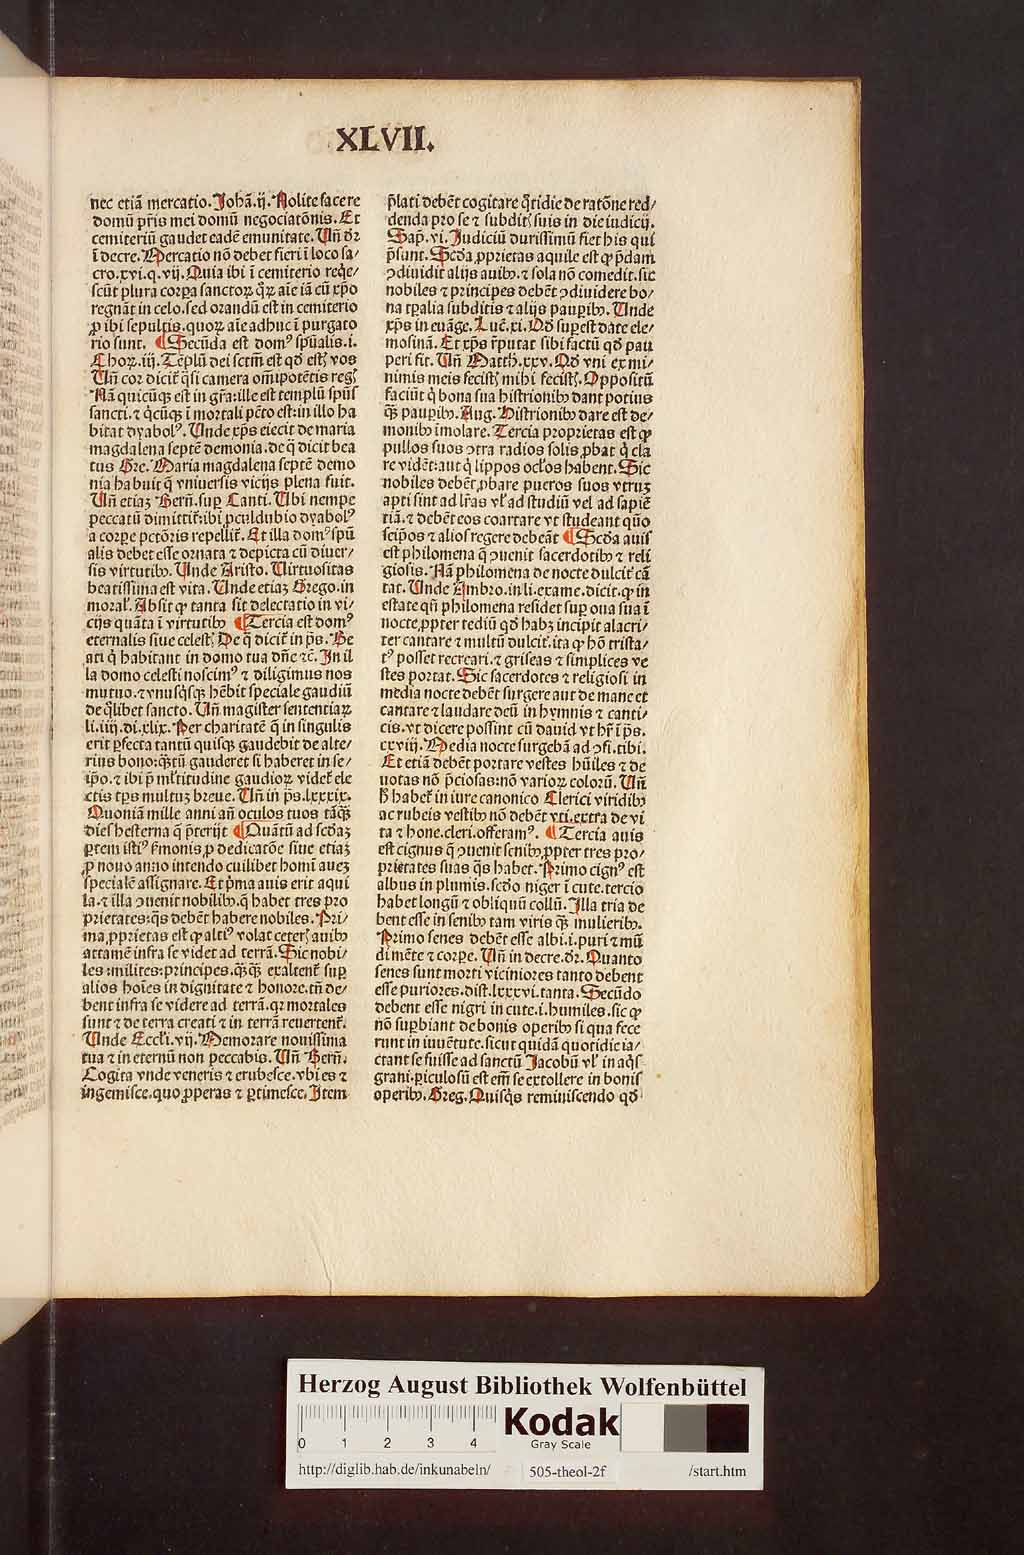 XLVII.
nec etiā mercatio. Johā.ij. Nolite facere
domū p̄ris mei domū negociatōnis. Et
cemiteriū gaudet eadē emunitate. Uñ dr̄
ī decre. Mercatio nō debet fieri ī loco sa/
cro.xvi.q.vij. Quia ibi ī cemiterio reqͥe/
scūt plura corpa sanctoꝝ qͣꝝ aīe iā cū xp̄o
regnāt in celo. sed orandū est in cemiterio
ꝓ ibi sepultis. quoꝝ aīe adhuc ī purgato
rio sunt. ¶ Secūda est domꝰ spūalis.i.
Choꝝ.iij. Tēplū dei sctm̄ est qd̄ estꝭ vos
Uñ cor dicit᷑ qͣsi camera om̄ipotētis regꝭ
Nā quicūqꝫ est in gr̄a: ille est templū spūs
sancti. ⁊ qͥcūqꝫ ī mortali pctō est: in illo ha
bitat dyabolꝰ. Unde xp̄s eiecit de maria
magdalena septē demonia. de q̄ dicit bea
tus Gre. Maria magdalena septē demo
nia habuit q̄ vniuersis vicijs plena fuit.
Uñ etiaꝫ Berñ. suꝑ Canti. Ubi nempe
peccatū dimittit᷑: ibi ꝓculdubio dyabolꝰ
a corpe pctōris repellit᷑. Et illa domꝰ spū
alis debet esse ornata ⁊ depicta cū diuer/
sis virtutibꝰ. Unde Aristo. Uirtuositas
beatissima est vita. Unde etiaꝫ Grego. in
moral᷑. Absit ꝙ tanta sit delectatio in vi/
cijs quāta ī virtutibꝰ ¶ Tercia est domꝰ
eternalis siue celestꝭ De q̄ dicit᷑ in ps̄. Be
ati qͥ habitant in domo tua dn̄e ⁊c̄. In il
la domo celesti noscimꝰ ⁊ diligimus nos
mutuo. ⁊ vnusqͥsqꝫ hēbit speciale gaudiū
de qͦlibet sancto. Uñ magister sententiaꝝ
li.iiij.di.xlix. Per charitatē q̄ in singulis
erit ꝑfecta tantū quisqꝫ gaudebit de alte/
rius bono: qͣꝫtū gauderet si haberet in se/
ip̄o. ⁊ ibi p̄ ml̄titudine gaudioꝝ videt᷑ ele
ctis tp̄s multuꝫ breue. Uñ in ps̄.lxxxix.
Quoniā mille anni añ oculos tuos tāqͣꝫ
dies hesterna q̄ p̄terijt ¶ Quātū ad scd̄aꝫ
ꝑtem istiꝰ ẜmonis ꝓ dedicatōe siue etiaꝫ
ꝓ nouo anno intendo cuilibet homī aueꝫ
specialē assignare. Et pͥma auis erit aqui
la. ⁊ illa ↄuenit nobilibꝰ. q̄ habet tres pro
prietates: qͣs debēt habere nobiles. Pri/
ma ꝓprietas est ꝙ altiꝰ volat ceterꝭ auibꝰ
attamē infra se videt ad terrā. Sic nobi/
les: milites: principes. qͣꝫqͣꝫ exaltent᷑ suꝑ
alios hoīes in dignitate ⁊ honore. tñ de/
bent infra se videre ad terrā. qꝛ mortales
sunt ⁊ de terra creati ⁊ in terrā reuertent᷑.
Unde Eccl̄i.vij. Memorare nouissima
tua ⁊ in eternū non peccabis. Uñ Berñ.
Cogita vnde veneris ⁊ erubesce. vbi es ⁊
ingemisce. quo ꝓperas ⁊ ꝑtimesce. Item
p̄lati debēt cogitare qͦtidie de ratōne red/
denda pro se ⁊ subditꝭ suis in die iudicij.
Sap̄.vi. Judiciū durissimū fiet his qui
p̄sunt. Scd̄a ꝓprietas aquile est ꝙ p̄dam
ↄdiuidit alijs auibꝰ. ⁊ sola nō comedit. sic
nobiles ⁊ principes debēt ↄdiuidere bo/
na tp̄alia subditis ⁊ alijs paupibꝰ. Unde
xp̄s in euāge. Luē.xi. Qd̄ suꝑest date ele/
mosinā. Et xp̄s r̄putat sibi factū qd̄ pau
peri fit. Uñ Matth.xxv. Qd̄ vni ex mi/
nimis meis fecistꝭ mihi fecistꝭ. Oppositū
faciūt qͥ bona sua histrionibꝰ dant potius
qͣꝫ paupibꝰ. Aug. Histrionibꝰ dare est de/
monibꝰ īmolare. Tercia proprietas est ꝙ
pullos suos ↄtra radios solis ꝓbat qͥ cla
re vidēt: aut qͥ lippos ocl̄os habent. Sic
nobiles debēt ꝓbare pueros suos vtruꝫ
apti sint ad lr̄as vl̓ ad studiū vel ad sapiē
tiā. ⁊ debēt eos coartare vt studeant quō
seip̄os ⁊ alios regere debeāt ¶ Scd̄a auis
est philomena q̄ ↄuenit sacerdotibꝰ ⁊ reli
giosis. Nā philomena de nocte dulcit᷑ cā
tat. Unde Ambro. in li. exame. dicit. ꝙ in
estate qñ philomena residet suꝑ oua sua ī
nocte, ꝓpter tediū qd̄ habꝫ incipit alacri/
ter cantare ⁊ multū dulcit᷑. ita ꝙ hō trista/
tꝰ posset recreari. ⁊ griseas ⁊ simplices ve
stes portat. Sic sacerdotes ⁊ religiosi in
media nocte debēt surgere aut de mane et
cantare ⁊ laudare deū in hymnis ⁊ canti/
cis. vt dicere possint cū dauid vt hr̄ ī ps̄.
cxviij. Media nocte surgebā ad ↄfi. tibi.
Et etiā debēt portare vestes hūiles ⁊ de
uotas nō p̄ciosas: nō varioꝝ colorū. Uñ
ħ habet᷑ in iure canonico Clerici viridibꝰ
ac rubeis vestibꝰ nō debēt vti. extra de vi
ta ⁊ hone. cleri. offeramꝰ. ¶ Tercia auis
est cignus q̄ ↄuenit senibꝰ ꝓpter tres pro/
prietates suas qͣs habet. Primo cignꝰ est
albus in plumis. scd̄o niger ī cute. tercio
habet longū ⁊ obliquū collū. Illa tria de
bent esse in senibꝰ tam viris qͣꝫ mulieribꝰ.
Primo senes debēt esse albi.i. puri ⁊ mū
di mēte ⁊ corpe. Uñ in decre. dr̄. Quanto
senes sunt morti viciniores tanto debent
esse puriores. dist.lxxxvi. tanta. Secūdo
debent esse nigri in cute.i. humiles. sic ꝙ
nō suꝑbiant de bonis operibꝰ si qua fece
runt in iuuētute. sicut quidā quotidie ia/
ctant se fuisse ad sanctū Jacobū vl̓ in aqͥs
grani. ꝑiculosū est em̄ se extollere in bonis
operibꝰ. Greg. Quisqͥs reminiscendo qd̄
Herzog August Bibliothek Wolfenbüttel
0 1 2 3 4
Kodak
Gray Scale
http://diglib.hab.de/inkunabeln/ 505-theol-2f /start.htm